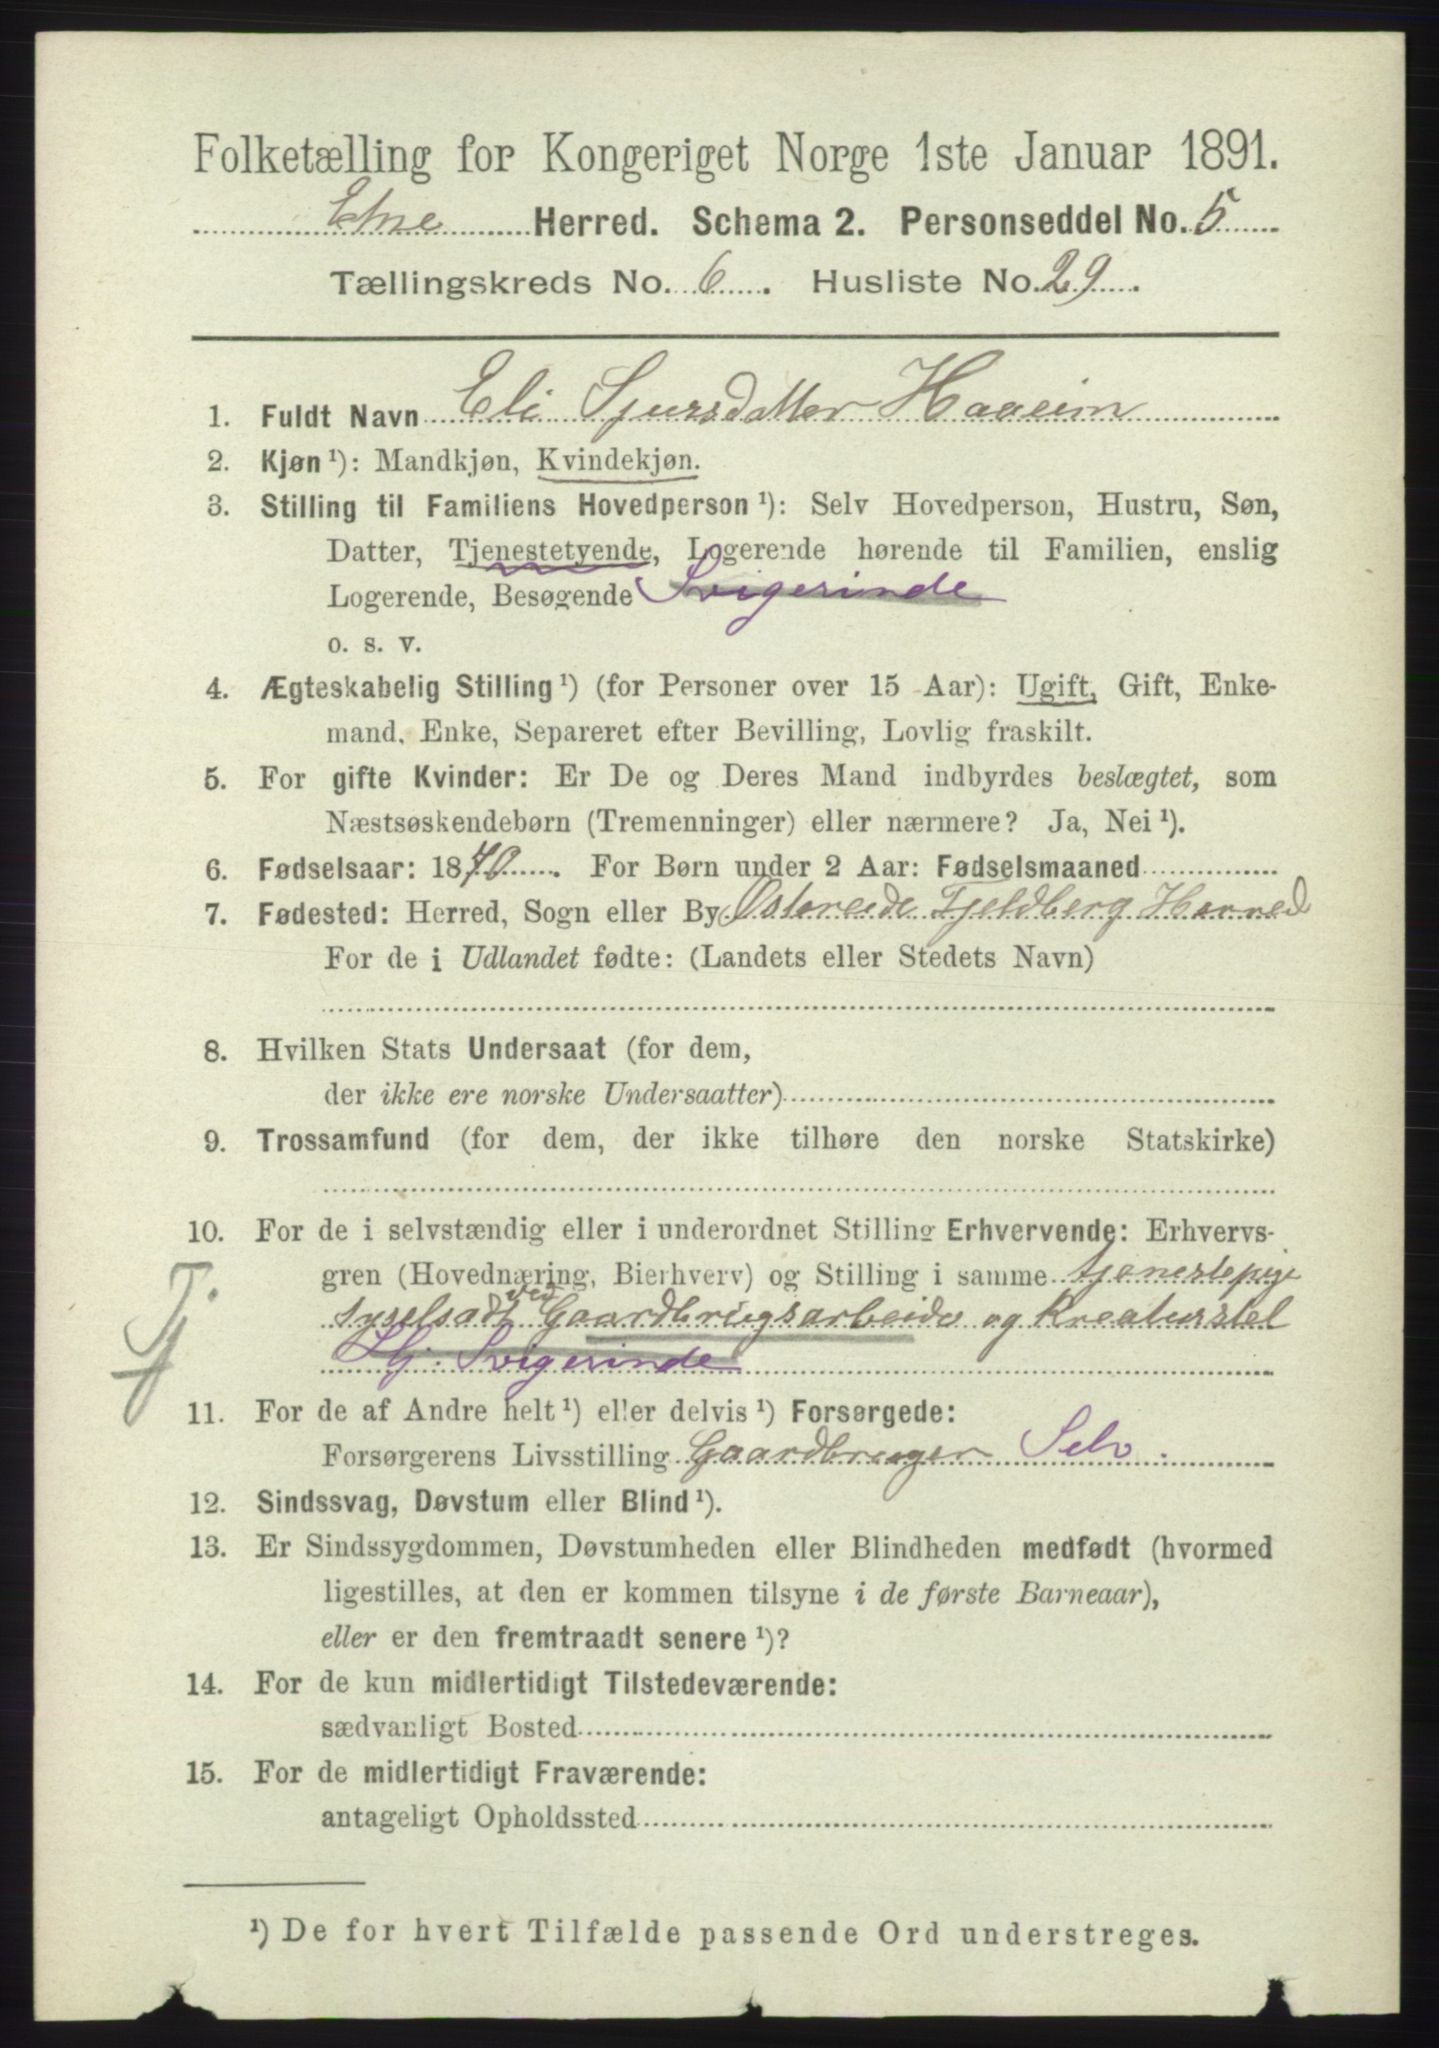 Folketælling for Kongeriget Norge 1ste Januar 1891.
Etne Herred. Schema 2. Personseddel No. 5
Tællingskreds No. 6. Husliste No. 29.
1. Fuldt Navn Eli Sjursdatter Haaeim
2. Kjøn ¹): Mandkjøn, Kvindekjøn.
3. Stilling til Familiens Hovedperson ¹): Selv Hovedperson, Hustru, Søn,
Datter, Tjenestetyende, Logerende hørende til Familien, enslig
Logerende, Besøgende Svigerinde
o. s. v.
4. Ægteskabelig Stilling ¹) (for Personer over 15 Aar): Ugift, Gift, Enke-
mand, Enke, Separeret efter Bevilling, Lovlig fraskilt.
5. For gifte Kvinder: Er De og Deres Mand indbyrdes beslægtet, som
Næstsøskendebørn (Tremenninger) eller nærmere? Ja, Nei ¹).
6. Fødselsaar: 1870. For Børn under 2 Aar: Fødselsmaaned
7. Fødested: Herred, Sogn eller By Østoreide Fjeldberg Herred
For de i Udlandet fødte: (Landets eller Stedets Navn)
8. Hvilken Stats Undersaat (for dem,
der ikke ere norske Undersaatter)
9. Trossamfund (for dem, der ikke tilhøre den norske Statskirke)
10. For de i selvstændig eller i underordnet Stilling Erhvervende: Erhvervs-
gren (Hovednæring, Bierhverv) og Stilling i samme tjenestepige
sysselsadt ved Gaardbrugsarbeide og Kreaturstel
Hj. Svigerinde
T.
11. For de af Andre helt ¹) eller delvis ¹) Forsørgede:
Forsørgerens Livsstilling Gaardbruger Selv.
12. Sindssvag, Døvstum eller Blind ¹).
13. Er Sindssygdommen, Døvstumheden eller Blindheden medfødt (hvormed
ligestilles, at den er kommen tilsyne i de første Barneaar),
eller er den fremtraadt senere ¹)?
14. For de kun midlertidigt Tilstedeværende:
sædvanligt Bosted
15. For de midlertidigt Fraværende:
antageligt Opholdssted
¹) De for hvert Tilfælde passende Ord understreges.